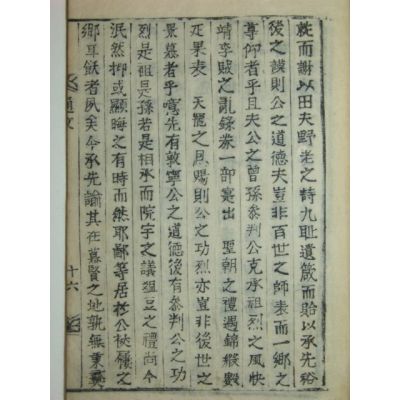 從而謝以田夫野老之詩九耻遺箴而貽以承先裕
後之謨則公之道德夫豈非百世之師表而一鄉之
尊仰者乎且夫公之曾孫叅判公克承祖烈之風快
靖李賊之亂錄券一部寔出 聖朝之禮遇錦緞數
疋果表 天麗之恩賜則公之功烈亦豈非後世之
景慕者乎噫先有敦寧公之道德後有叅判公之功
烈是祖是孫若是相承而院宇之議俎豆之禮尚今
泯然抑或顯晦之有時而然耶鄙等居於公桉儀之
鄉耳飫者夙矣今承先諭其在慕賢之地孰無秉彛
通文
十六